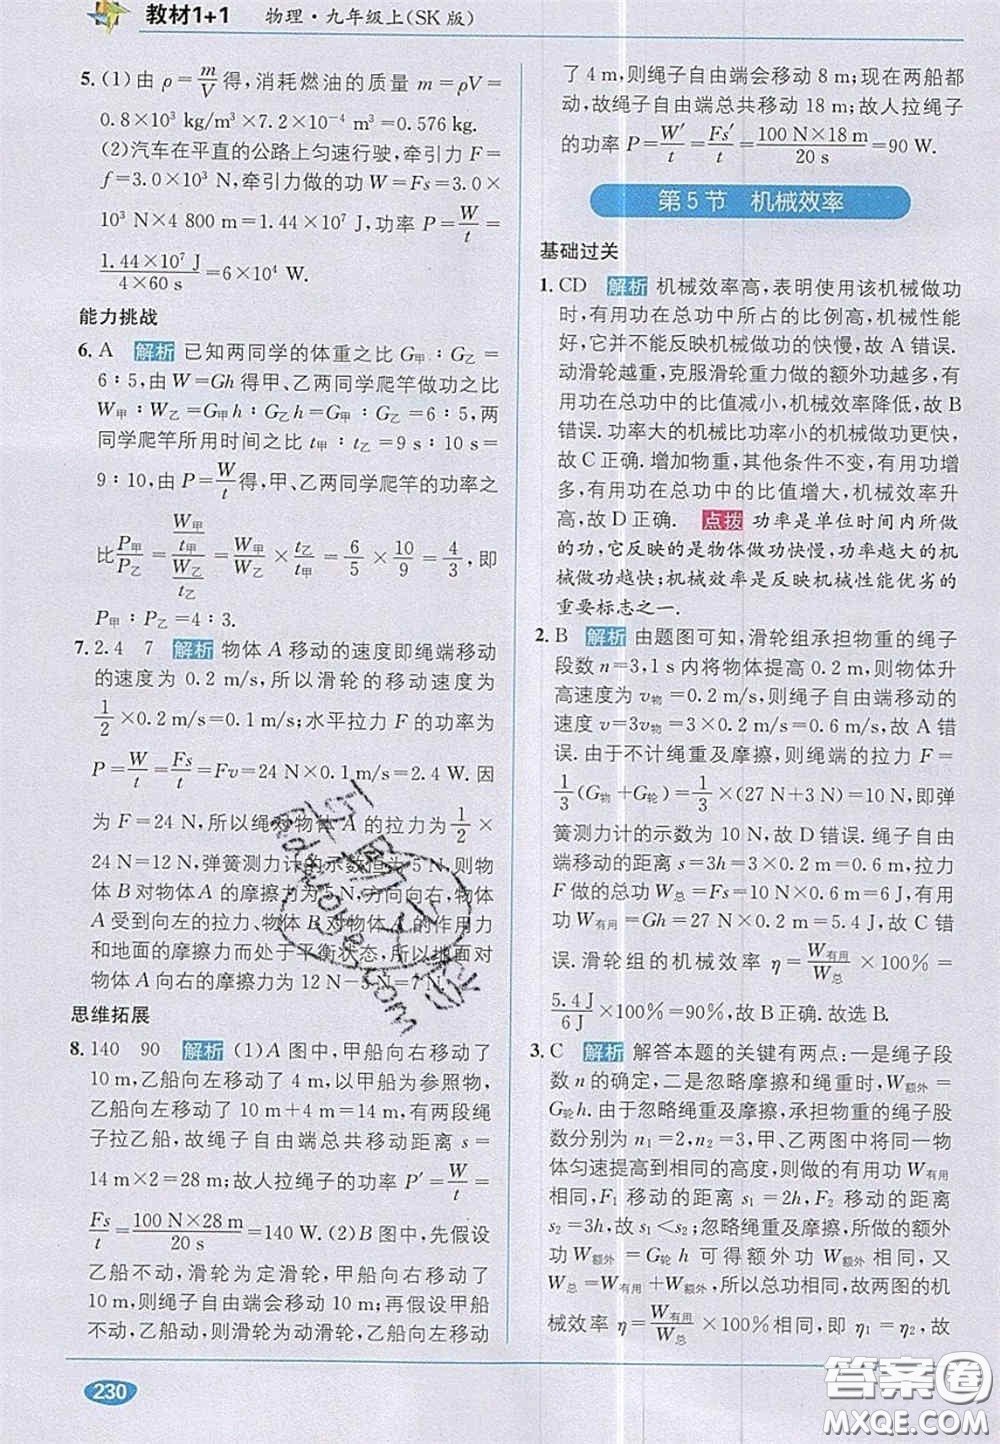 教材1+1 物理·九年级上(SK版)
5. (1)由 ρ=m/V 得,消耗燃油的质量 m=ρV=
0.8×10³ kg/m³×7.2×10⁻⁴ m³=0.576 kg.
(2)汽车在平直的公路上匀速行驶,牵引力 F=
f=3.0×10³ N,牵引力做的功 W=Fs=3.0×
10³ N×4 800 m=1.44×10⁷ J,功率 P=W/t=
1.44×10⁷ J/4×60 s=6×10⁴ W.
能力挑战
6. A 解析 已知两同学的体重之比 G甲:G乙=
6:5,由 W=Gh 得甲、乙两同学爬竿做功之比
W甲:W乙=G甲h:G乙h=G甲:G乙=6:5,两
同学爬竿所用时间之比 t甲:t乙=9 s:10 s=
9:10,由 P=W/t 得,甲、乙两同学爬竿的功率之
比 P甲/P乙=(W甲/t甲)/(W乙/t乙)=W甲/W乙×t乙/t甲=6/5×10/9=4/3,即
P甲:P乙=4:3.
7. 2.4 7 解析 物体 A 移动的速度即绳端移动
的速度为 0.2 m/s,所以滑轮的移动速度为
1/2×0.2 m/s=0.1 m/s;水平拉力 F 的功率为
P=W/t=Fs/t=Fv=24 N×0.1 m/s=2.4 W. 因
为 F=24 N,所以绳对物体 A 的拉力为 1/2×
24 N=12 N,弹簧测力计的示数恒为 5 N,则物
体 B 对物体A 的摩擦力为 5 N,方向向右,物体
A 受到向左的拉力、物体 B 对物体 A 的作用力
和地面的摩擦力而处于平衡状态,所以地面对
物体 A 向右的摩擦力为 12 N-5 N=7 N.
思维拓展
8. 140 90 解析 (1)A 图中,甲船向右移动了
10 m,乙船向左移动了 4 m,以甲船为参照物,
乙船向左移动了 10 m+4 m=14 m,有两段绳
子拉乙船,故绳子自由端总共移动距离 s=
14 m×2=28 m;故人拉绳子的功率 P′=W/t=
Fs/t=100 N×28 m/20 s=140 W. (2)B 图中,先假设
乙船不动,滑轮为定滑轮,甲船向右移动了
10 m,则绳子自由端会移动 10 m;再假设甲船
不动,乙船动,则滑轮为动滑轮,乙船向左移动
230
了 4 m,则绳子自由端会移动 8 m;现在两船都
动,故绳子自由端总共移动 18 m;故人拉绳子
的功率 P=W′/t=Fs′/t=100 N×18 m/20 s=90 W.
第 5 节 机械效率
基础过关
1. CD 解析 机械效率高,表明使用该机械做功
时,有用功在总功中所占的比例高,机械性能
好,它并不能反映机械做功的快慢,故 A 错误.
动滑轮越重,克服滑轮重力做的额外功越多,有
用功在总功中的比值减小,机械效率降低,故 B
错误.功率大的机械比功率小的机械做功更快,
故 C 正确.增加物重,其他条件不变,有用功增
多,有用功在总功中的比值增大,机械效率升
高,故 D 正确. 点拨 功率是单位时间内所做
的功,它反映的是物体做功快慢,功率越大的机
械做功越快;机械效率是反映机械性能优劣的
重要标志之一.
2. B 解析 由题图可知,滑轮组承担物重的绳子
段数 n=3,1 s 内将物体提高 0.2 m,则物体升
高速度为 v物=0.2 m/s,则绳子自由端移动的
速度 v=3v物=3×0.2 m/s=0.6 m/s,故 A 错
误.由于不计绳重及摩擦,则绳端的拉力 F=
1/3(G物+G轮)=1/3×(27 N+3 N)=10 N,即弹
簧测力计的示数为 10 N,故 D 错误.绳子自由
端移动的距离 s=3h=3×0.2 m=0.6 m,拉力
F 做的总功 W总=Fs=10 N×0.6 m=6 J,有用
功 W有用=Gh=27 N×0.2 m=5.4 J,故 C 错
误.滑轮组的机械效率 η=W有用/W总×100%=
5.4 J/6 J×100%=90%,故 B 正确.故选 B.
3. C 解析 解答本题的关键有两点:一是绳子段
数 n 的确定,二是忽略摩擦和绳重时,W额外
=G轮h.由于忽略绳重及摩擦,承担物重的绳子股
数分别为 n₁=2,n₂=3,甲、乙两图中将同一物
体匀速提升到相同的高度,则做的有用功 W有用
相同,F₁ 移动的距离 s₁=2h,F₂ 移动的距离
s₂=3h,故 s₁<s₂;忽略绳重及摩擦,所做的额外
功 W额外=G轮 h 可得额外功 W额外相同,又
W总=W有用+W额外,所以总功相同,故两图的机
械效率 η=W有用/W总×100%相同,即 η₁=η₂,故
答案圈
MXQE.COM